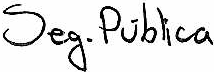 Seg. Pública